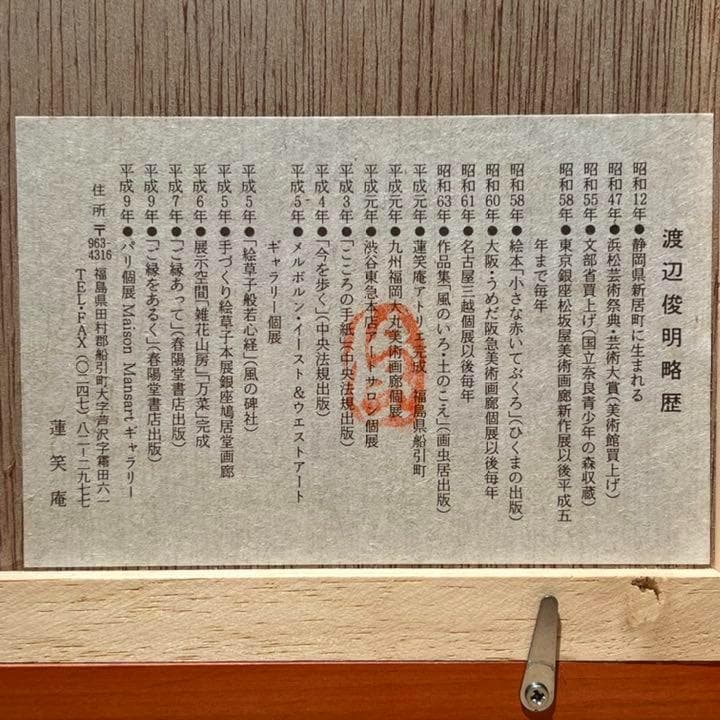 渡辺俊明略歴
昭和12年●静岡県新居町に生まれる
昭和47年●浜松芸術祭典・芸術大賞（美術館買上げ）
昭和55年●文部省買上げ（国立奈良青少年の森収蔵）
昭和58年●東京銀座松坂屋美術画廊新作展以後平成五
年まで毎年
昭和58年●絵本「小さな赤いてぶくろ」（ひくまの出版）
昭和60年●大阪・うめだ阪急美術画廊個展以後毎年
昭和61年●名古屋三越個展以後毎年
昭和63年●作品集「風のいろ・土のこえ」（画虫居出版）
平成元年●蓮笑庵アトリエ完成 福島県船引町
平成元年●九州福岡大丸美術画廊個展
平成元年●渋谷東急本店アートサロン個展
平成3年●「こころの手紙」（中央法規出版）
平成4年●「今を歩く」（中央法規出版）
平成5年●メルボルン・イースト&ウエストアート
ギャラリー個展
平成5年●「絵草子般若心経」（風の碑社）
平成5年●手づくり絵草子本展銀座鳩居堂画廊
平成6年●展示空間「雑花山房」「万菜」完成
平成7年●「ご縁あって」（春陽堂書店出版）
平成9年●「ご縁をあるく」（春陽堂書店出版）
平成9年●パリ個展 Maison Mansart ギャラリー
住所 〒963-4316 福島県田村郡船引町大字芦沢字霜田六一
TEL・FAX（〇二四七）八二－二九七七
蓮笑庵